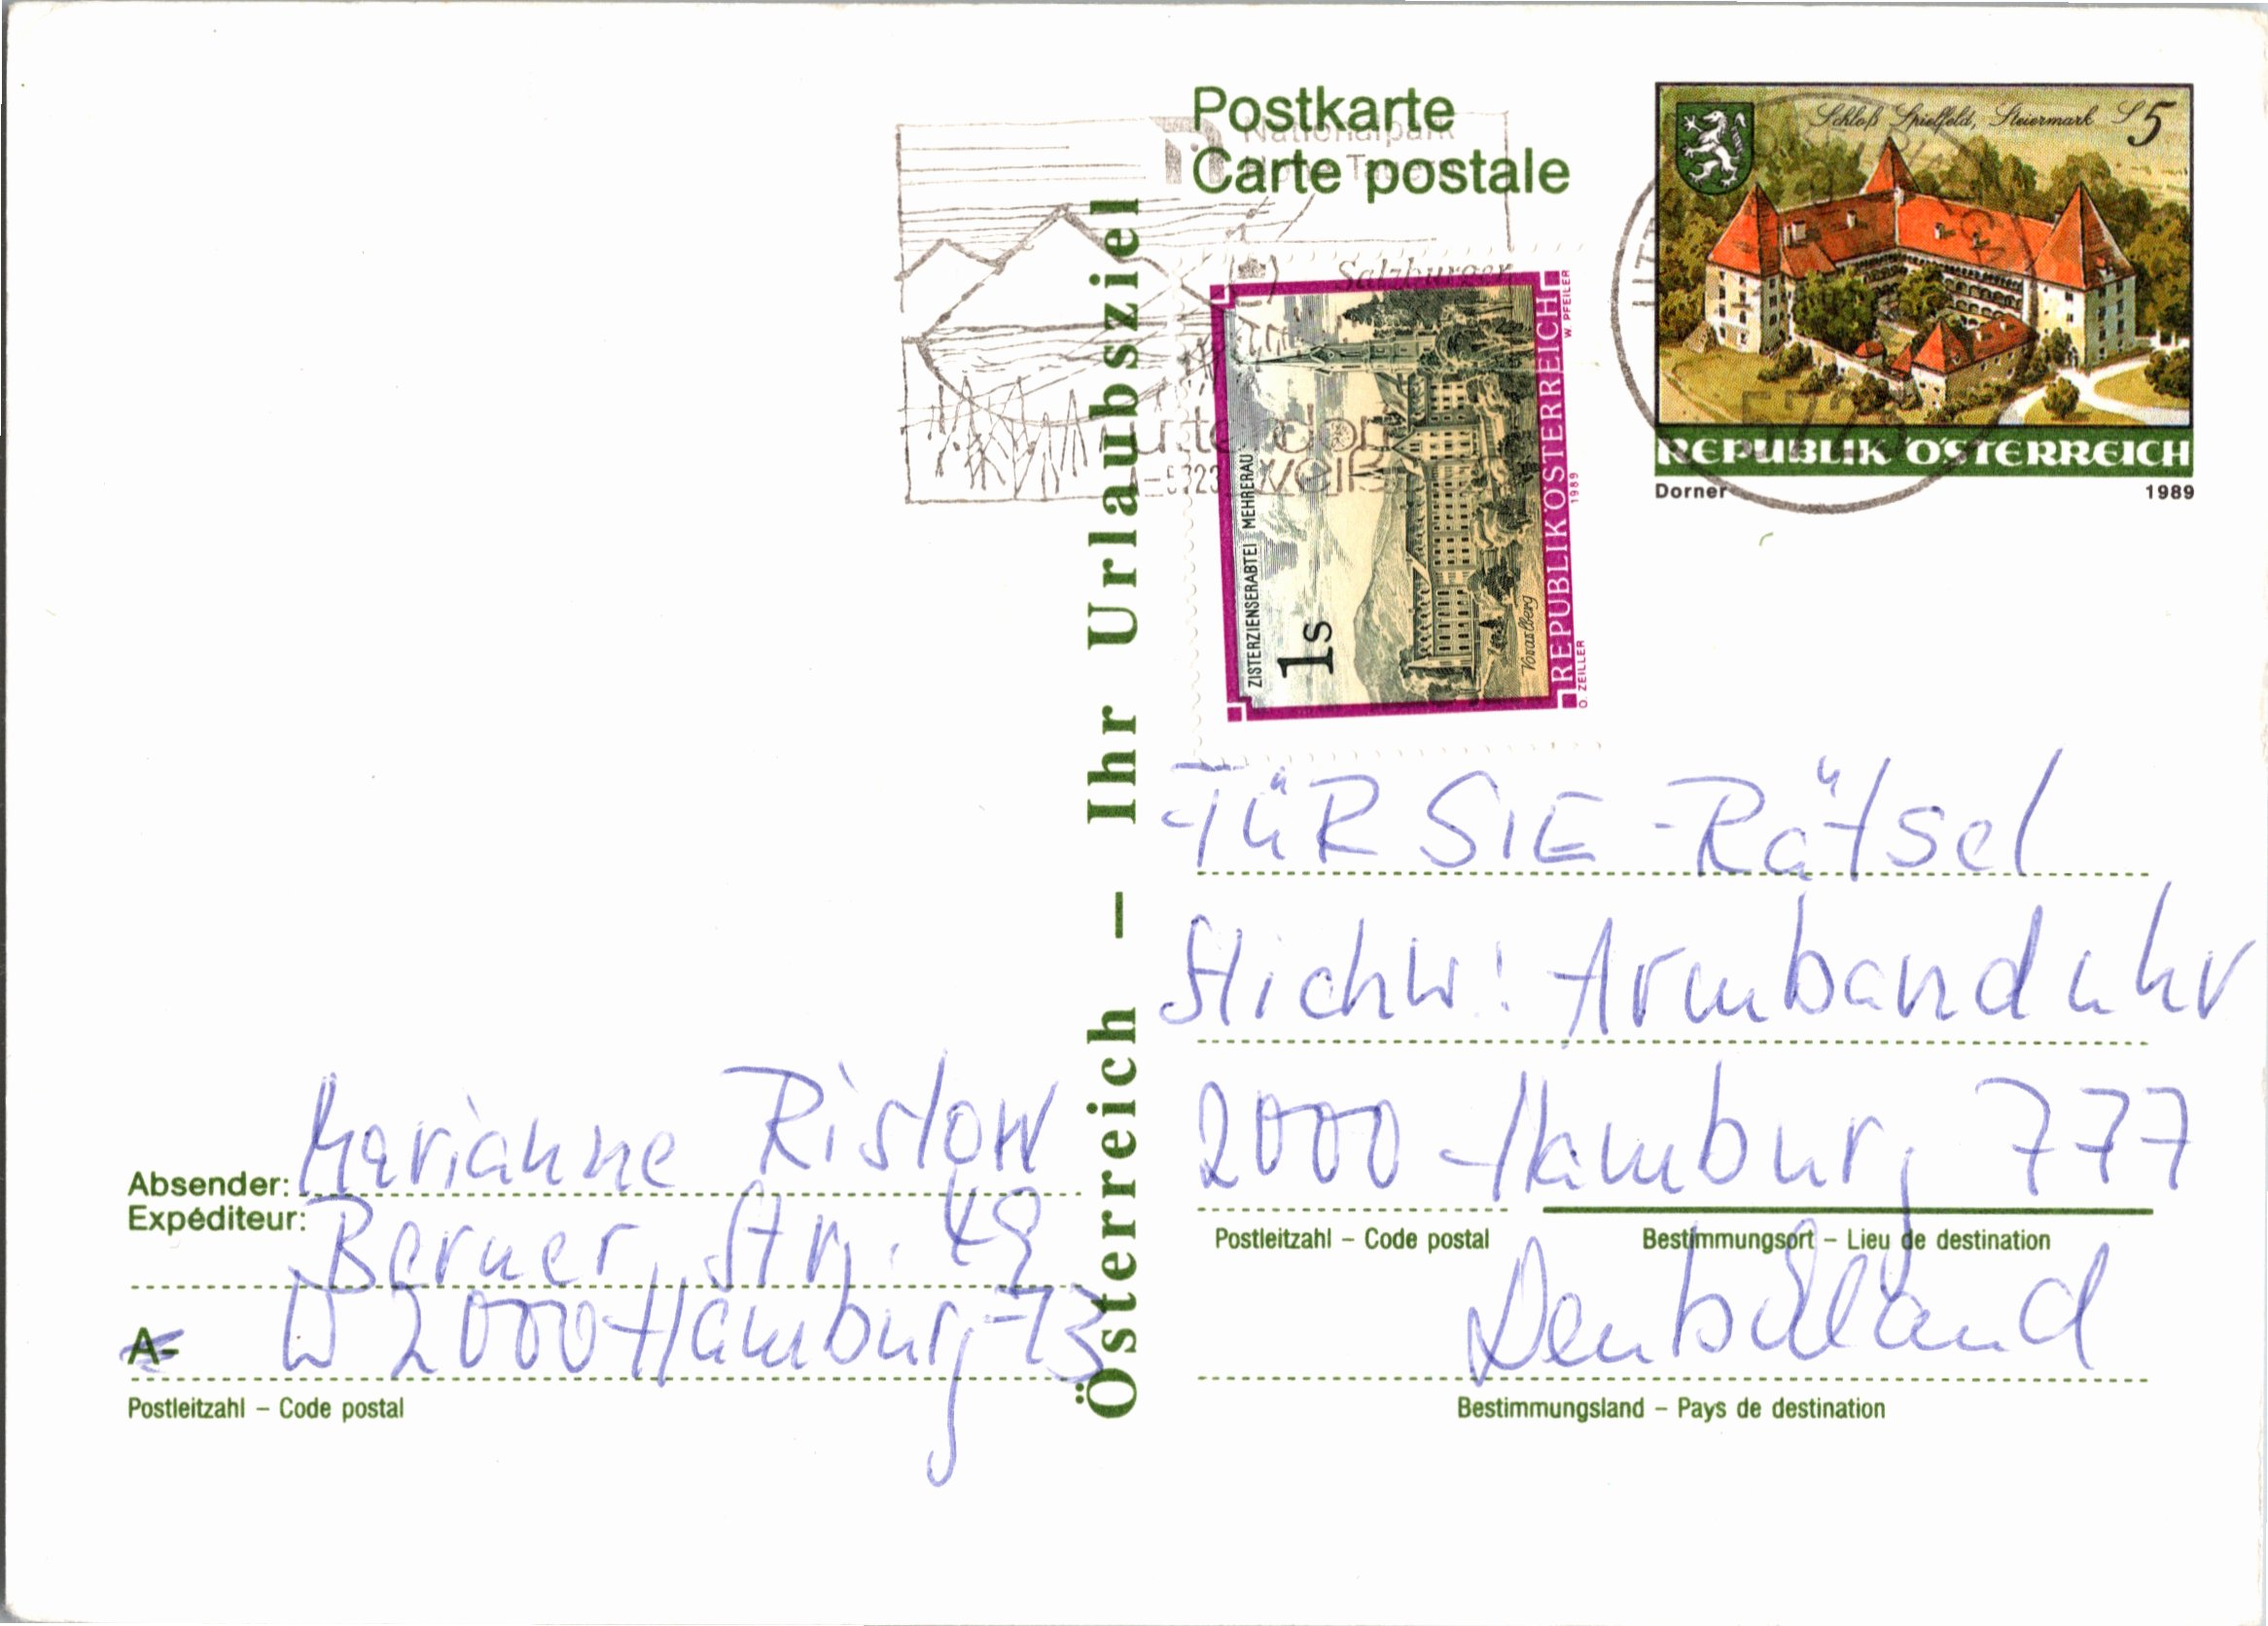 Postkarte
Carte postale
Nationalpark
Hohe Tauern
Salzburger
A-5723
weiß
Schloß Spielfeld, Steiermark S 5
5723
REPUBLIK ÖSTERREICH
Dorner 1989
ZISTERZIENSERABTEI MEHRERAU
1s
Vorarlberg
REPUBLIK ÖSTERREICH
O. ZEILLER 1989 W. PFEILER
Österreich – Ihr Urlaubsziel
FÜR SIE-Rätsel
Stichw: Armbanduhr
2000 Hamburg 777
Postleitzahl – Code postal Bestimmungsort – Lieu de destination
Deutschland
Bestimmungsland – Pays de destination
Absender: Marianne Ristow
Expéditeur: Berner Str. 49
A- W 2000 Hamburg 73
Postleitzahl – Code postal